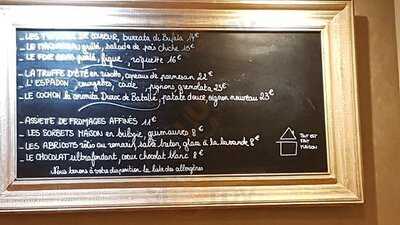 LES TOMATES DE COULEUR, burrata di Bufala 14€
LE MAQUEREAU grillé, salade de pois chiche 10€
LE FOIE GRAS poêlé, figue, roquette 16€
LA TRUFFE D'ÉTÉ en risotto, copeaux de parmesan 22€
L'ESPADON, courgettes, coco, pignons, gremolata 23€
LE COCHON la Duroc de Batallé, patate douce, oignon nouveau 23€
ASSIETTE DE FROMAGES AFFINÉS 11€
LES SORBETS MAISON en , guimauves 8€
LES ABRICOTS rôtis au romarin, sablé breton, glace à la lavande 8€
LE CHOCOLAT ultrafondant, cœur chocolat blanc 8€
Nous tenons à votre disposition la liste des allergènes
TOUT EST
FAIT
MAISON